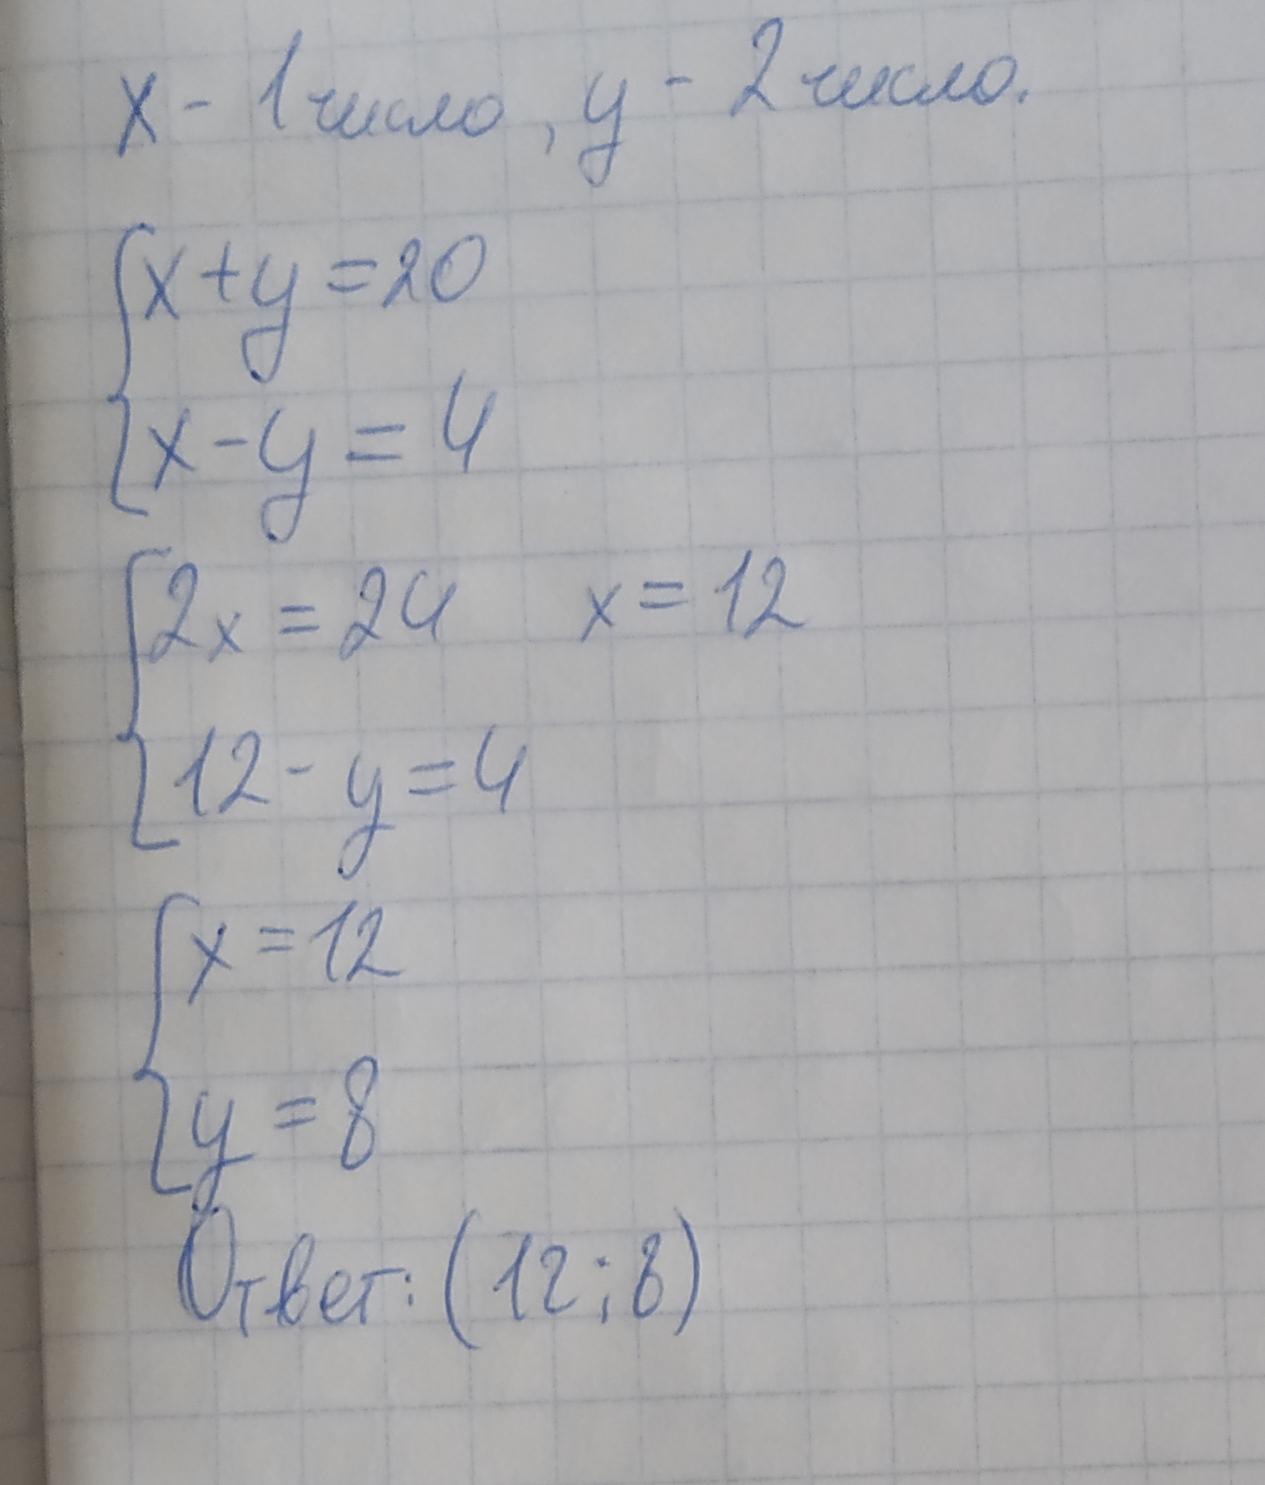 x - 1 число, y - 2 число.
x+y=20
x-y=4
2x=24 x=12
12-y=4
x=12
y=8
Ответ: (12;8)